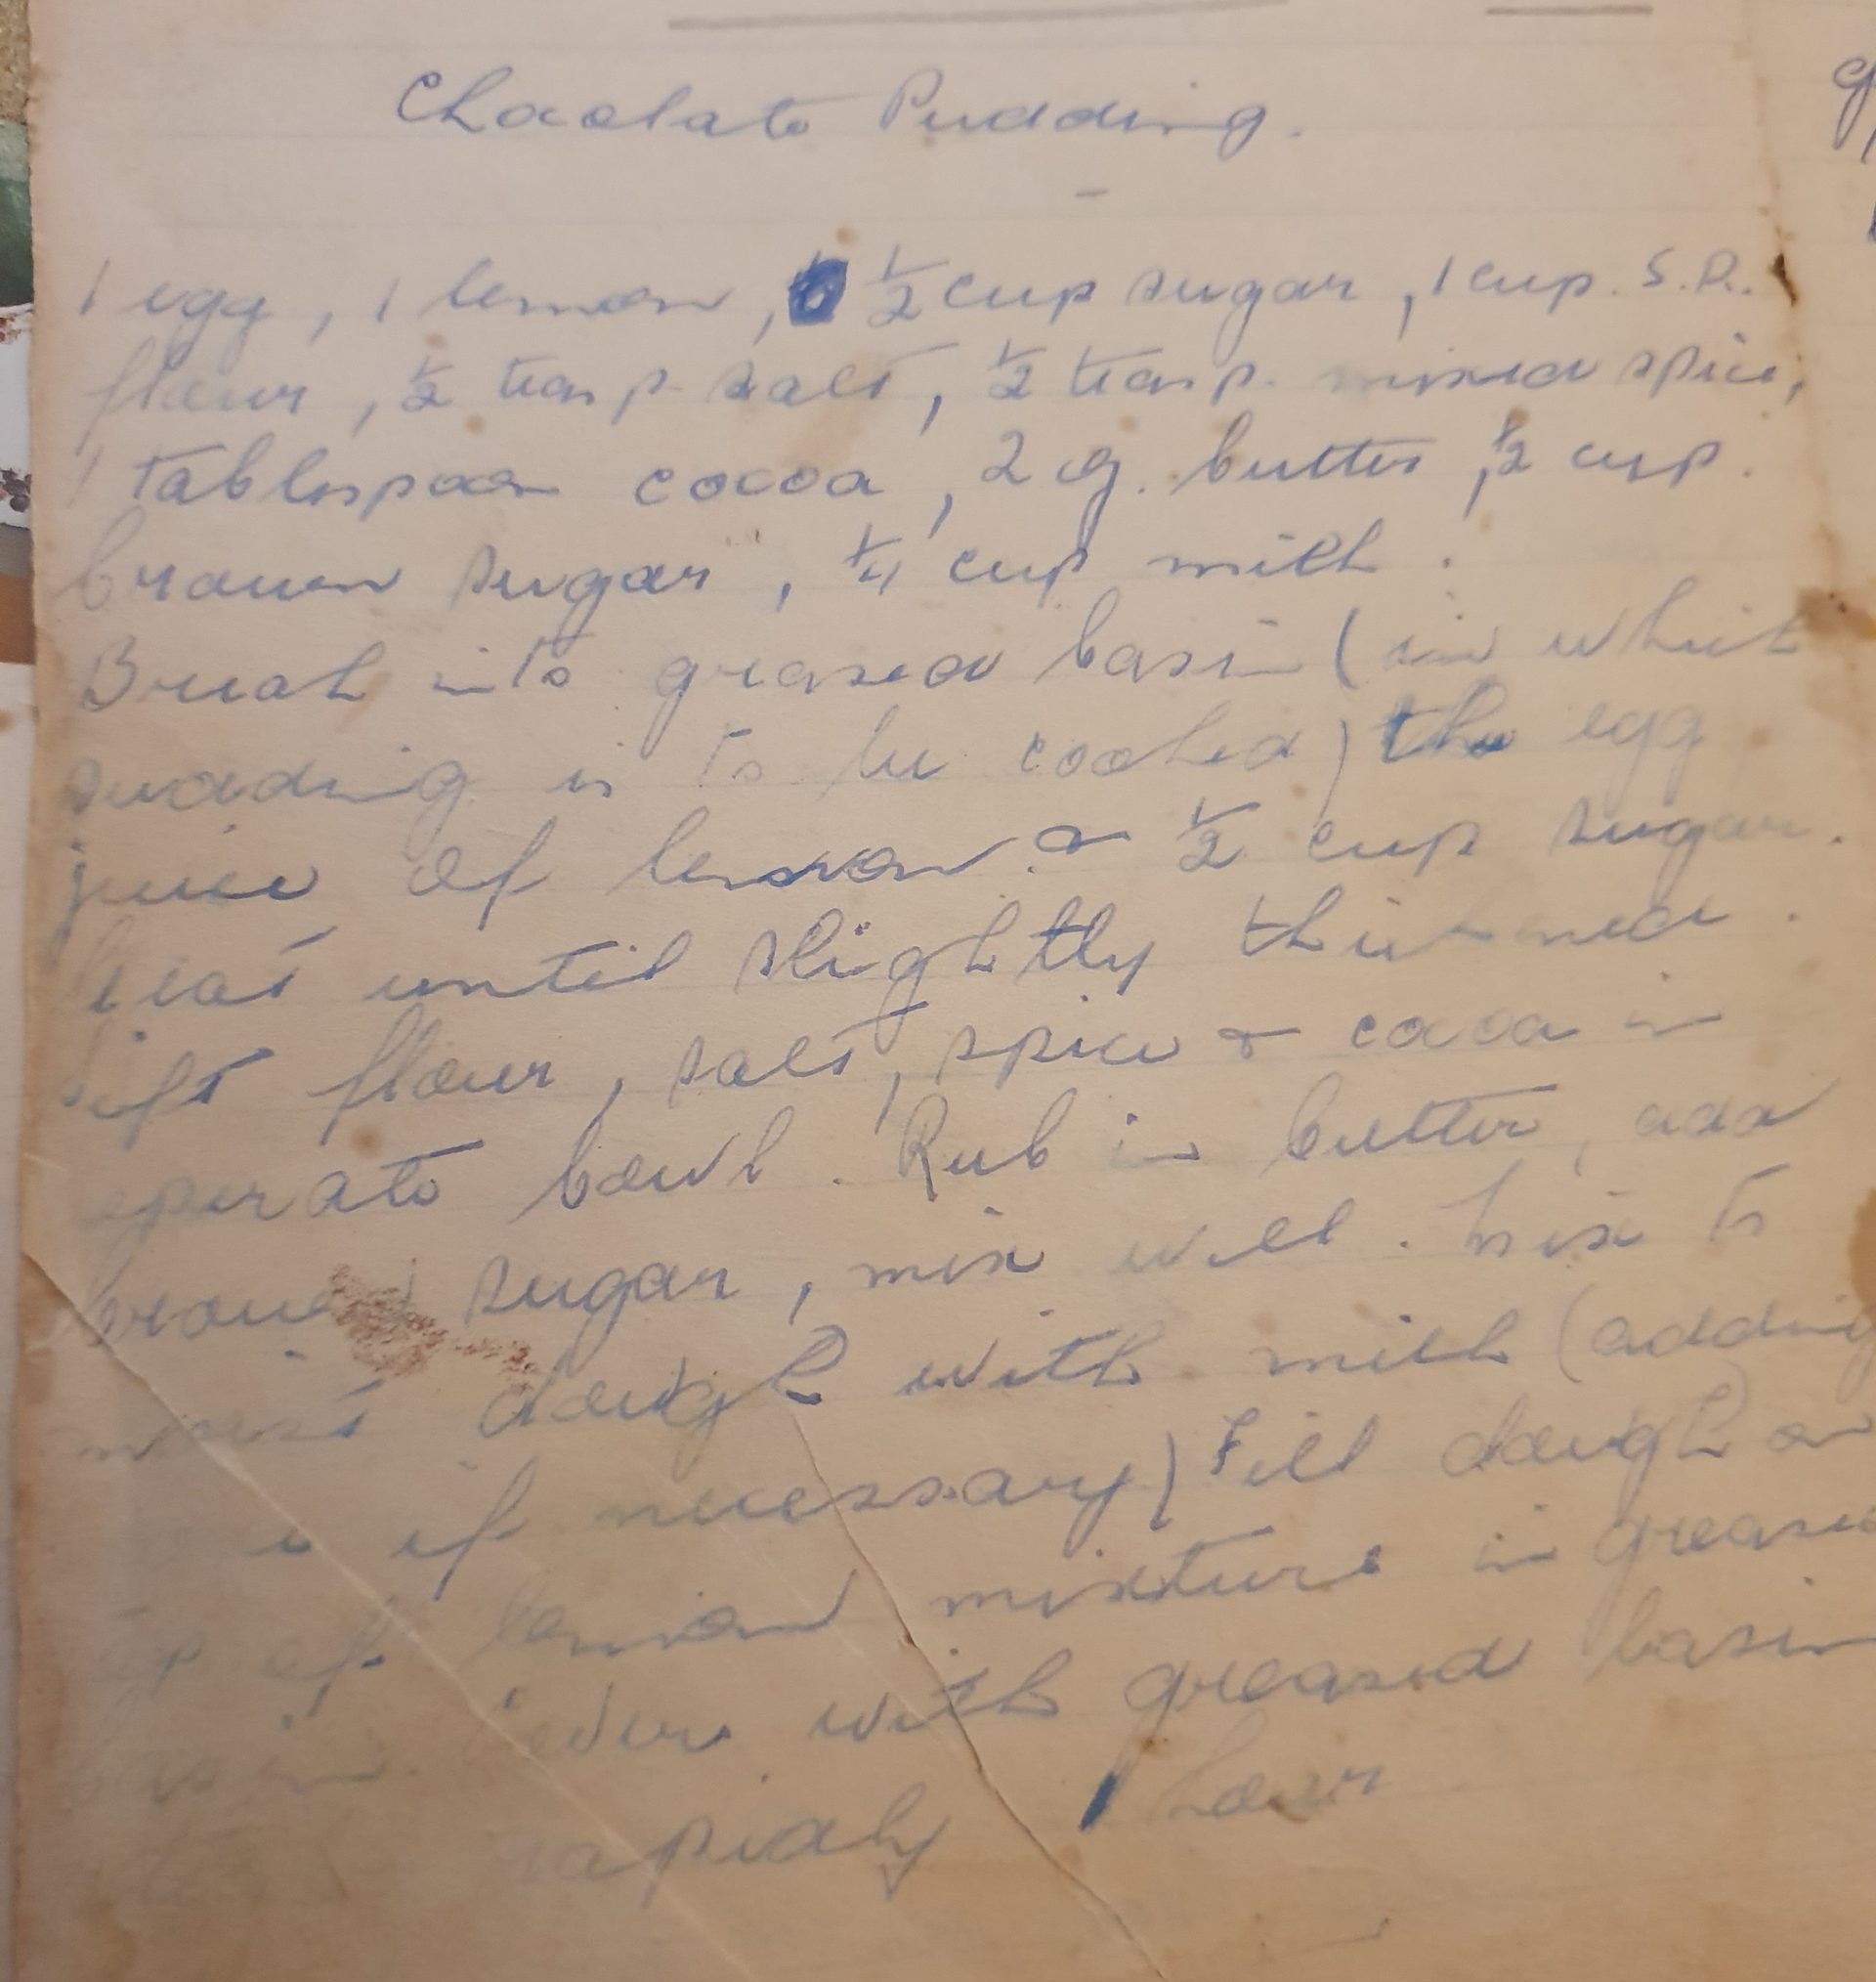 Chocolate Pudding.
1 egg, 1 lemon, ½ cup sugar, 1 cup. S.R.
flour, ½ teasp salt, ½ teasp. mixed spice,
1 tablespoon cocoa, 2 g. butter, ½ cup.
brown sugar, ¼ cup milk.
Break into greased basin (in which
pudding is to be cooked) the egg
juice of lemon & ½ cup sugar.
Beat until slightly thickened.
Sift flour, salt, spice & cocoa in
seperate bowl. Rub in butter, add
brown sugar, mix well. Mix to
moist dough with milk (adding
if necessary) Fill dough on
top of lemon mixture in greased
basin. Cover with greased basin
rapidly 1 hour